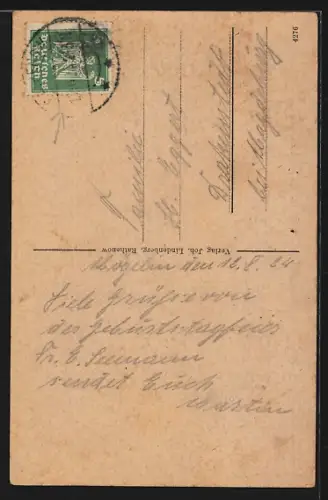 5
Deutsches
Reich
4276
Familie
H. Eggert
bei Magdeburg
Verlag Joh. Lindenberg, Rathenow
Mögelin den 18. V. 24
Viele Grüsse von
der Geburtstagsfeier
Fr. E. Seemann
sendet Euch
Martin